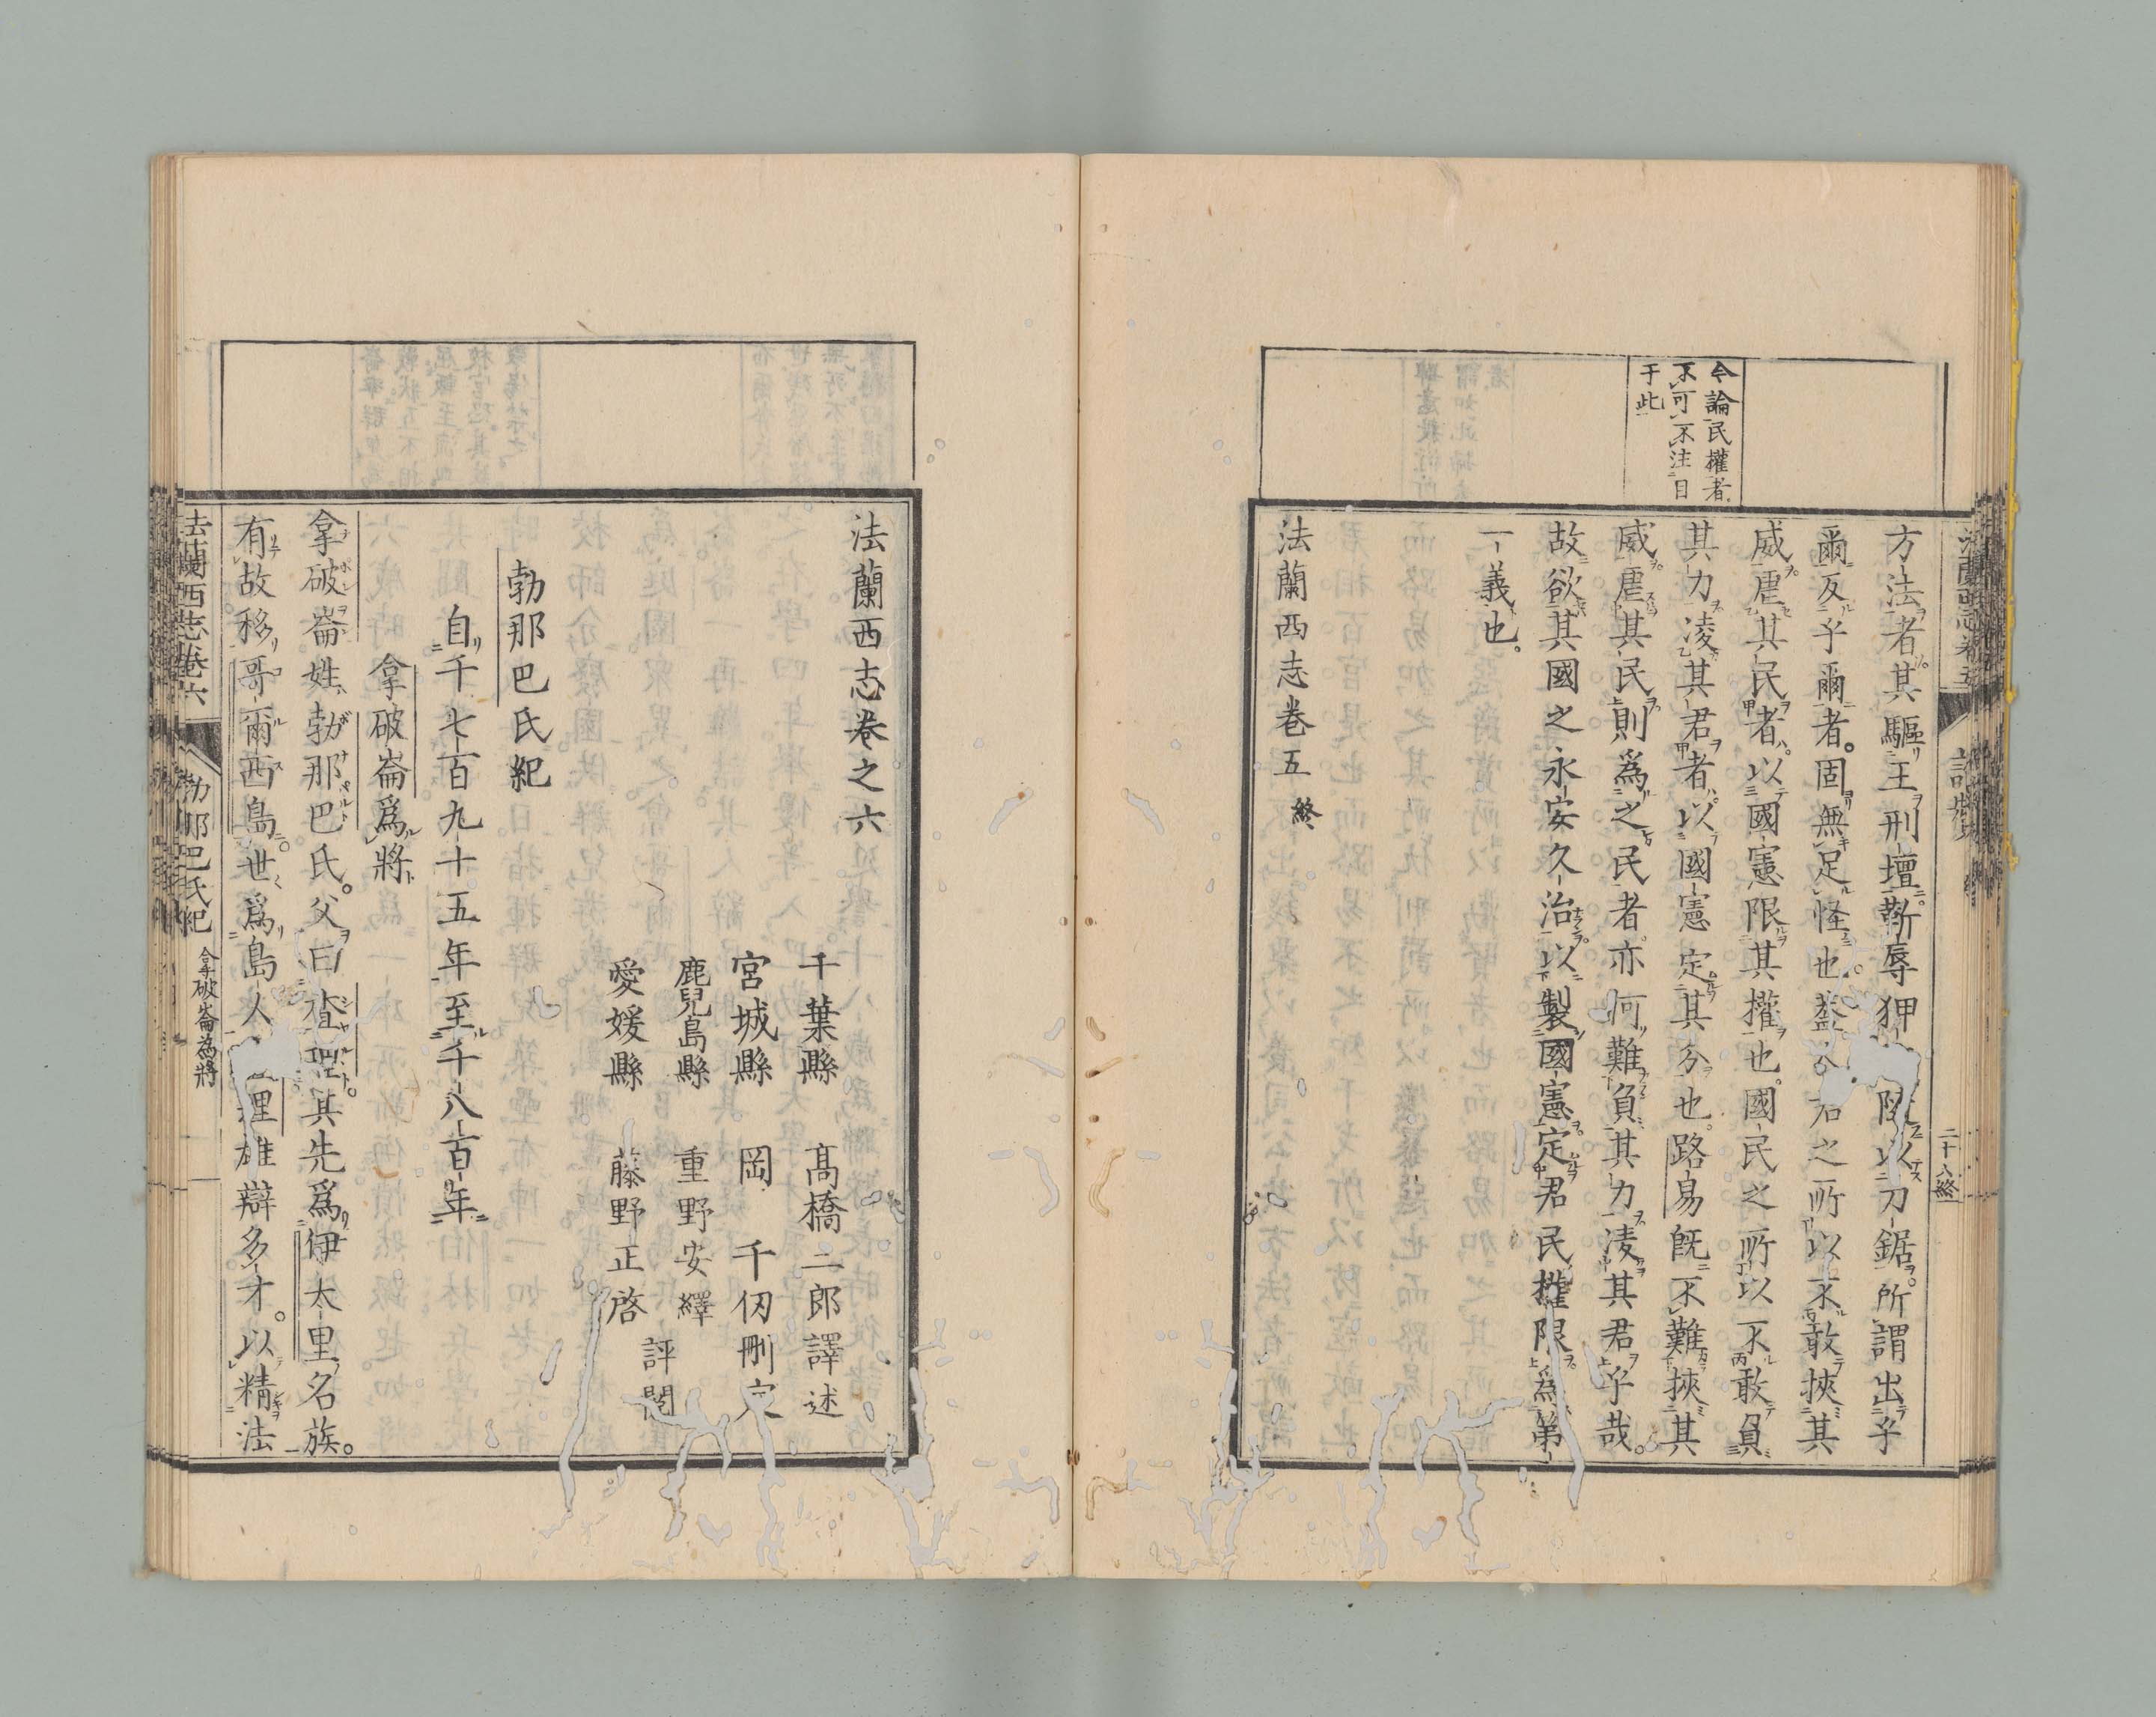 今論民權者
不可不注目
于此
方法者其驅王刑壇斬辱狎以刀鋸所謂出乎
爾反乎爾者固無足怪也蓋君之所以不敢挾其
威虐其民者以國憲限其權也國民之所以不敢負
其力凌其君者以國憲定其分也路易既不難挾其
威虐其民則爲之民者亦何難負其力凌其君乎哉
故欲其國之永安久治以製國憲定君民權限爲第
一義也
法蘭西志卷五 終
二十八終
法蘭西志卷之六
千葉縣 高橋二郎譯述
宮城縣 岡 千仭刪定
鹿兒島縣 重野安繹
愛媛縣 藤野正啓
評閲
勃那巴氏紀
自千七百九十五年至千八百年
拿破崙爲將
拿破崙姓勃那巴氏父曰其先爲伊太里名族
有故移哥爾西島世爲島人雄辯多才以精法
法蘭西志卷六 勃那巴氏紀 拿破崙為將